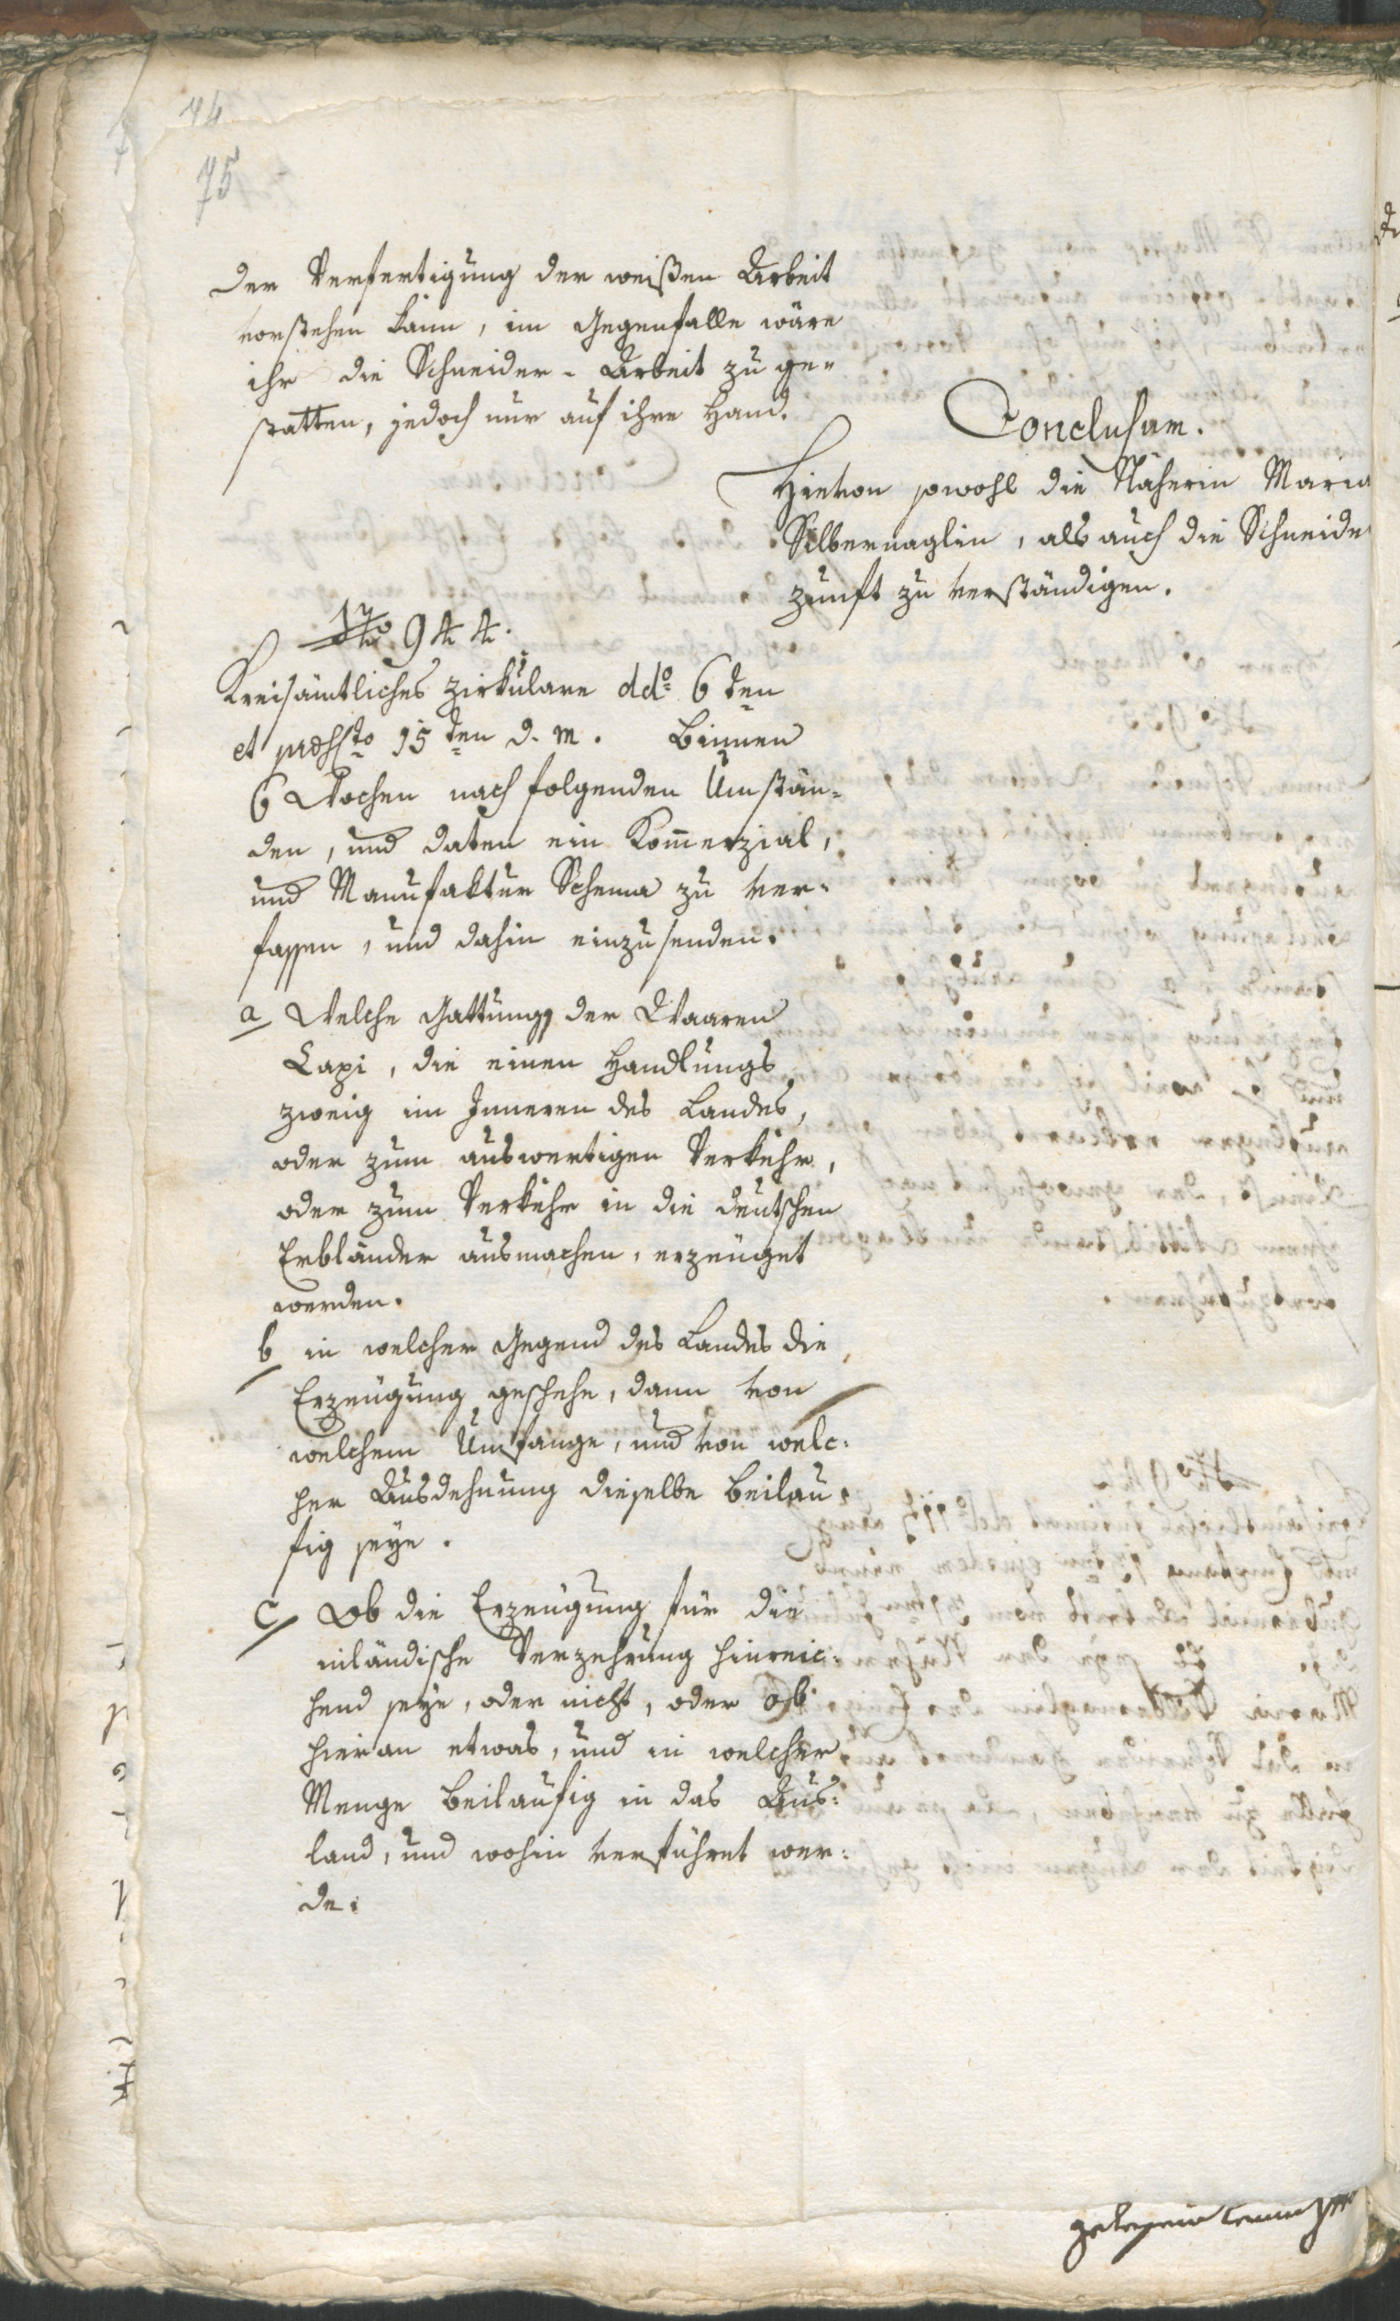 74
75
der Verfertigung der weißen Arbeit
vorstehen kann, im Gegenfalle wäre
ihr die Schneider-Arbeit zu ge=
statten, jedoch nur auf ihre Hand.
Conclusum.
Hievon sowohl die Näherin Maria
Silbernaglin, als auch die Schneider
zunft zu verständigen.
No 944.
Kreisämtliches Zirkulare ddo 6ten
et præssto 15ten d. M. Binnen
6 Wochen nach folgenden Umstän=
den, und Daten ein Kommerzial,
und Manufaktur Schema zu ver=
fassen, und dahin einzusenden.
a Welche Gattung der Waaren
die einen Handlungs
zweig im Inneren des Landes,
oder zum auswertigen Verkehr,
oder zum Verkehr in die deutschen
Erbländer ausmachen, erzeuget
werden.
b in welcher Gegend des Landes die
Erzeugung geschehe, dann von
welchem Umfange, und von welc=
her Ausdehnung dieselbe beiläu=
fig seye.
c Ob die Erzeugung für die
inländische Verzehrung hinreic=
hend seye, oder nicht, oder ob
hieran etwas, und in welcher
Menge beiläufig in das Aus=
land, und wohin verführet wer=
de.